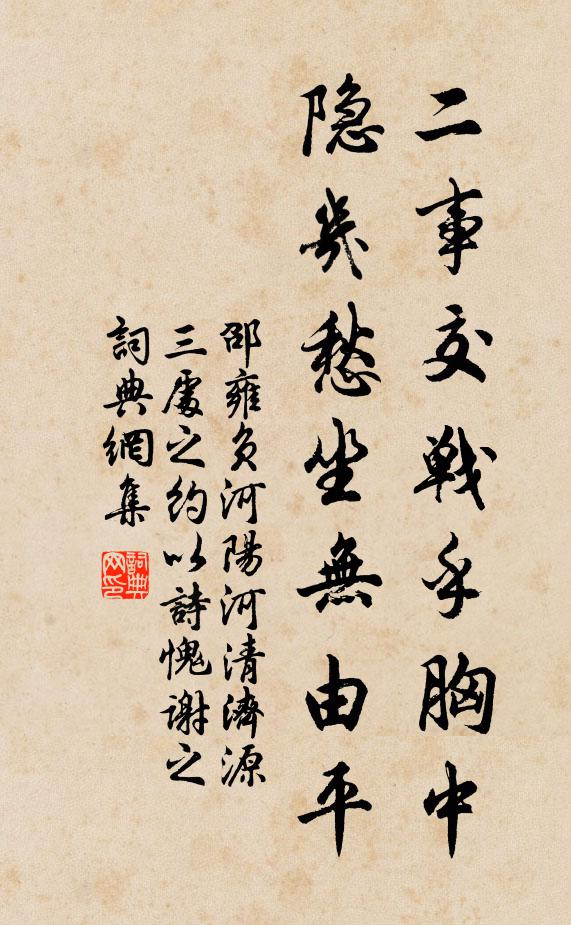 二事交戦乎胸中
隐几愁坐無由平
邵雍负河陽河清濟源
三處之約以詩愧谢之
詞典網集
詞典网印